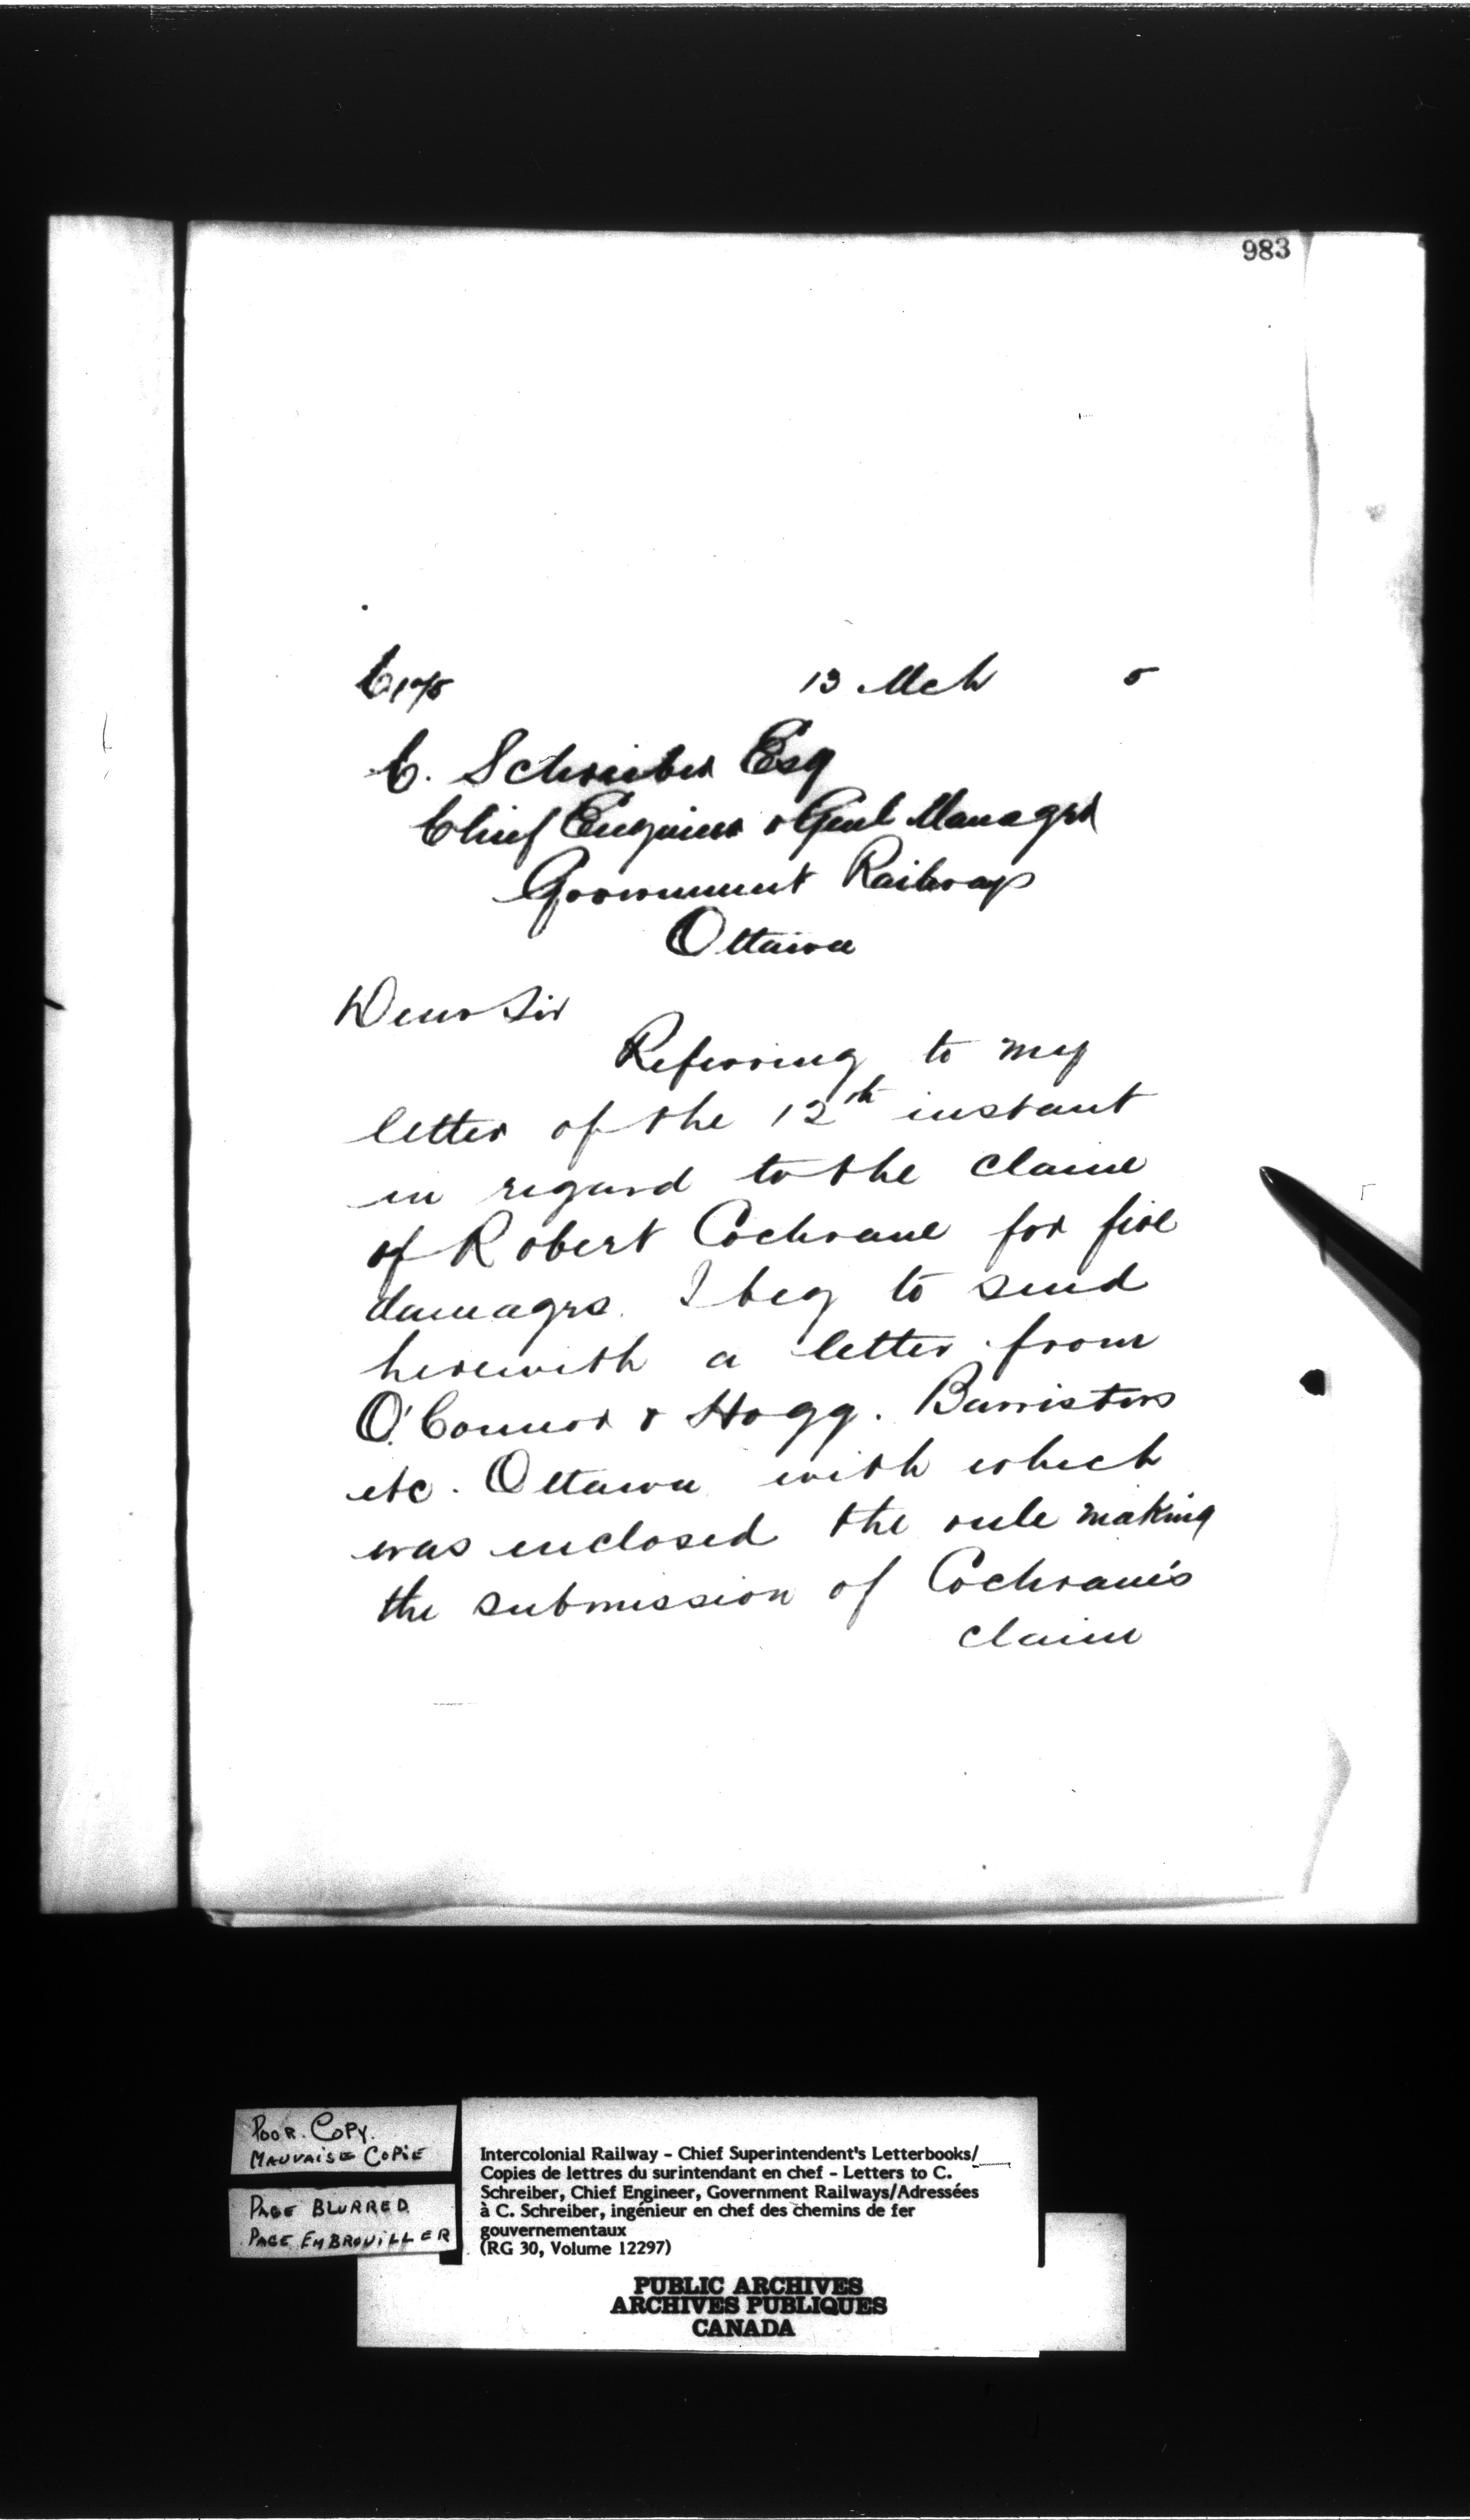 983
13 Mch 5
C. Schreiber Esq
Chief Engineer & Genl Manager
Government Railways
Ottawa
Dear Sir
Referring to my
letter of the 12th instant
in regard to the claim
of Robert Cochrane for fire
damages. I beg to send
herewith a letter from
O'Connor & Hogg. Barristers
etc. Ottawa with which
was enclosed the rule making
the submission of Cochrane's
claim
POOR. COPY.
MAUVAISE COPIE
PAGE BLURRED
PAGE EMBROUILLER
Intercolonial Railway - Chief Superintendent's Letterbooks/
Copies de lettres du surintendant en chef - Letters to C.
Schreiber, Chief Engineer, Government Railways/Adressées
à C. Schreiber, ingénieur en chef des chemins de fer
gouvernementaux
(RG 30, Volume 12297)
PUBLIC ARCHIVES
ARCHIVES PUBLIQUES
CANADA